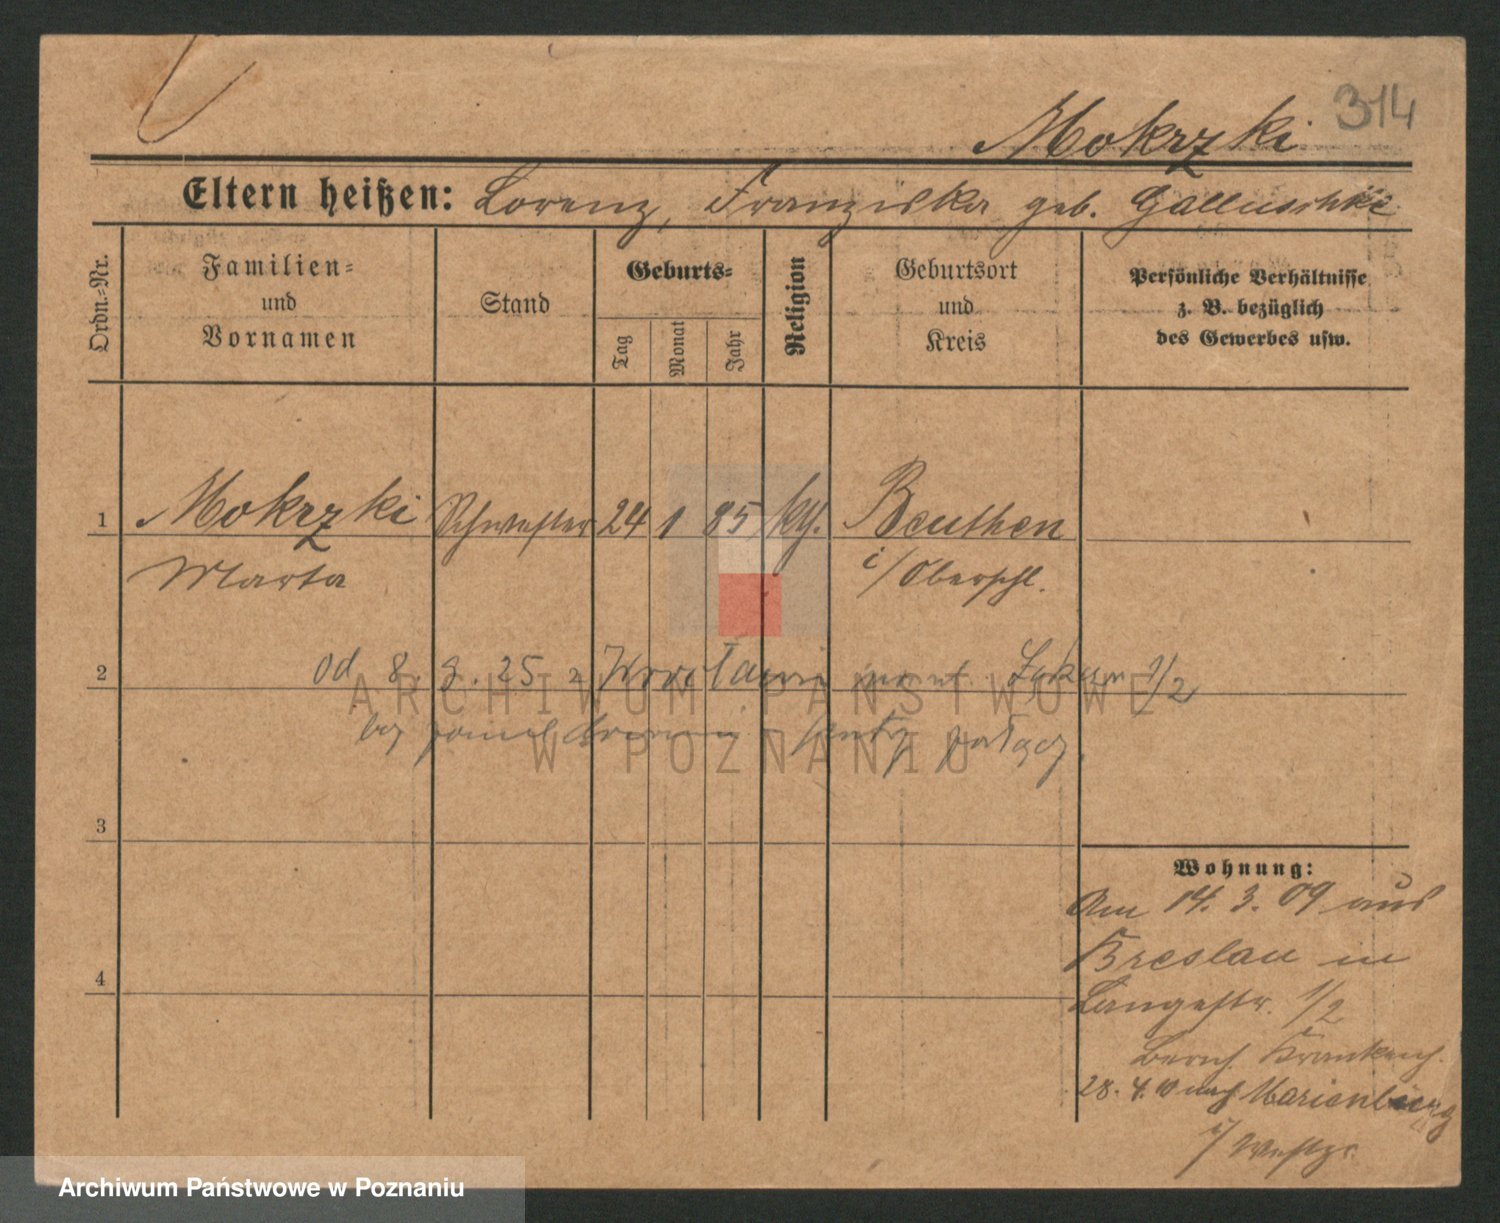 314
Mokrzki
Eltern heißen: Lorenz, Franziska geb. Galluschke
Ordn.-Nr.
Familien-
und
Vornamen
Stand
Geburts-
Tag
Monat
Jahr
Religion
Geburtsort
und
Kreis
Persönliche Verhältnisse
z. B. bezüglich
des Gewerbes usw.
1 Mokrzki Schwester 24 1 85 kth. Beuthen
Marta i/Oberschl.
2 od 8. 9. 25 z Wrocławia 1/2
ARCHIWUM PAŃSTWOWE
W POZNANIU
3
Wohnung:
Am 14. 3. 09 aus
Breslau in
Langestr. 1/2
4
28. 4. 10 nach Marienburg
i/ Westpr.
Archiwum Państwowe w Poznaniu